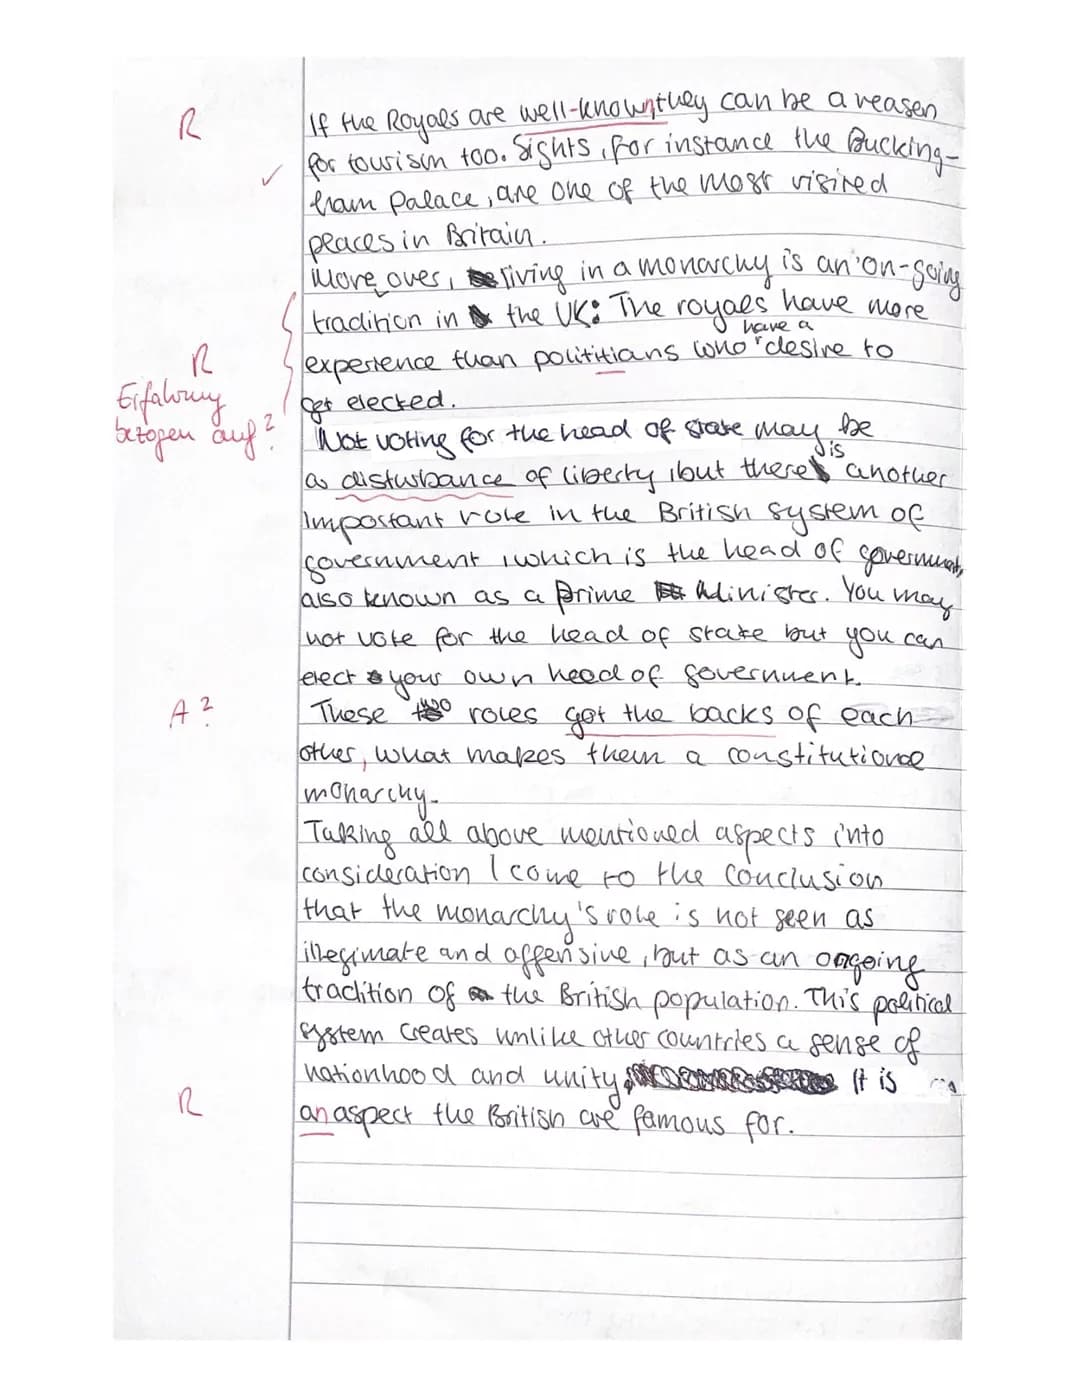 R
If the Royals are well-known, they can be a reason
for tourism too. Sights, for instance the Bucking-
✓
ham Palace, are one of the most visited
places in Britain.
More over, living in a monarchy is an on-going
tradition in the UK: The royals have more
have a
R
experience than polititians who desire to
Erfahrung
get elected.
bezogen auf?
Not voting for the head of state may be
is
a disturbance of liberty, but there another
important role in the British system of
government, which is the head of government,
also known as a Prime Minister. You may
not vote for the head of state but you can
elect your own head of government.
A?
These two roles got the backs of each
other, what makes them a constitutional
monarchy.
Taking all above mentioned aspects into
consideration I come to the conclusion
that the monarchy's role is not seen as
illegimate and offensive, but as an ongoing
tradition of the British population. This political
system creates unlike other countries a sense of
nationhood and unity. It is
R
an aspect the British are famous for.